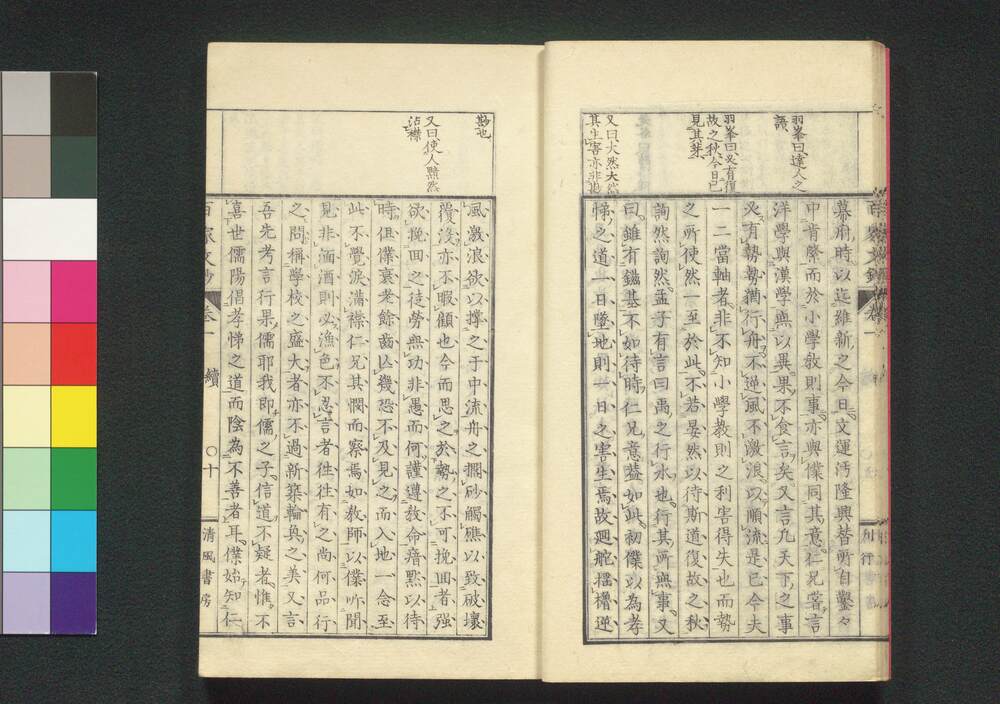 羽峯曰達人之
語
羽峯曰必有復
故之秋今日已
見其葬
又曰大然大然
其生害亦非
幕府時以迄維新之今日文運汚隆興替所自鑿々
中肯綮而於小學敎則事亦與僕同其意仁兄嘗言
洋學與漢學無以異果不食言矣又言凡天下之事
必有勢勢猶行舟不逆風不激浪以順流是已今夫
一二當軸者非不知小學敎則之利害得失也而勢
之所使然一至於此不若晏然以待斯道復故之秋
詢然詢然孟子有言曰禹之行水也行其所無事又
曰雖有鎡基不如待時仁兄意葢如此初僕以為孝
悌之道一日墜地則一日之害生焉故廻舵搖櫓逆
刊行
勘也
又曰使人黯然
沾襟
風激浪欲以撐之于中流舟之擱砂觸礁以致破壞
覆沒亦不暇顧也今而思之於勢之不可挽回者强
欲挽回之徒勞無功非愚而何謹遵敎命瘖默以待
時但僕衰老餘齒幾恐不及見之而入地一念至
此不覺淚滿襟仁兄其憫而察焉如敎師以僕所聞
見非湎酒則必漁色不忍言者徃徃有之尚何品行
之問稱學校之盛大者亦不過新築輪奐之美又言
吾先考言行果儒耶我即儒之子信道不疑者惟不
喜世儒陽倡孝悌之道而陰為不善者耳僕始知仁
百家文鈔 卷一 續 〇十 清風書房